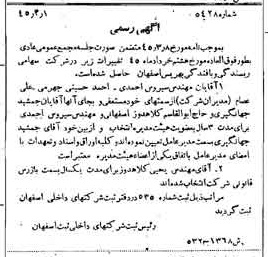 شماره ۵۴۲۸ ۴۵ر۴ر۱
آگهی رسمی
بموجب نامه مورخ ۴۵ر۳ر۸ متضمن صورت جلسه مجمع عمومی عادی
بطور فوق العاده مورخ هفتم خرداد ماه ۴۵ تغییرات زیر در شرکت سهامی
ریسندگی و بافندگی بهریس اصفهان حاصل شده است
۱ آقایان مهندس سیروس احمدی ـ احمد حسینی چهرمی علی
عصام (مدیران شرکت) از سمتهای خود مستعفی و بجای آنها آقایان جمشید
جهانگیری و حاج ابوالقاسم کلاهدوز اصفهانی و مهندس سیروس احمدی
برای مدت ۳ سال بعضویت هیئت مدیره انتخاب و از بین خود آقای جمشید
جهانگیری بسمت مدیر عامل تعیین نموده اند کلیه اوراق و اسناد و تعهدات با
امضای مدیر عامل باتفاق یکی از اعضاء هیئت مدیره معتبر است
۲ ـ آقای مهندس یحیی کلاهدوز برای مدت یکسال بسمت بازرس
قانونی شرکت انتخاب شده اند
مراتب ذیل ثبت شماره ۵۳۵ در دفتر ثبت شرکتهای داخلی اصفهان
ثبت گردید
رئیس ثبت شرکتهای داخلی ثبت اصفهان